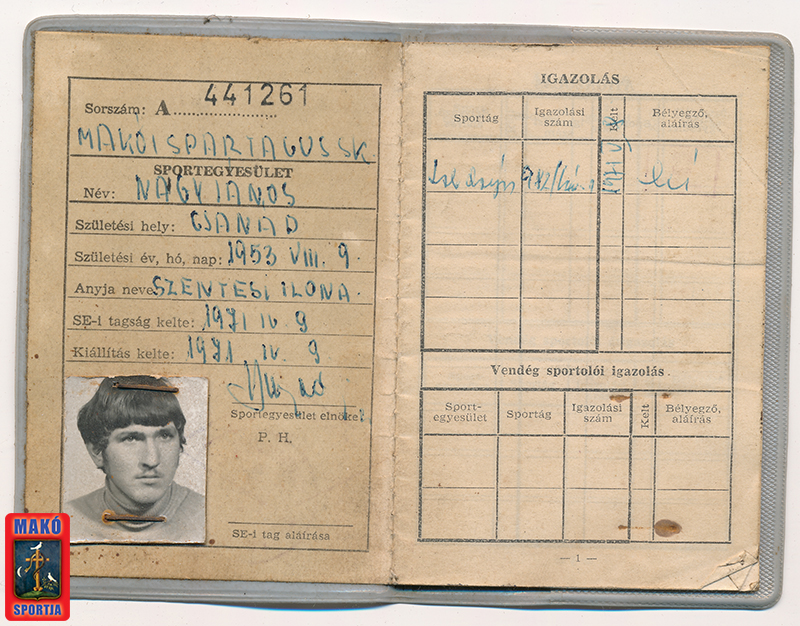 Sorszám: A 441261
MAKÓI SPARTACUS SK
SPORTEGYESÜLET
Név: NAGY JÁNOS
Születési hely: CSANÁD
Születési év, hó, nap: 1953 VIII. 9.
Anyja neve SZENTESI ILONA.
SE-i tagság kelte: 1971 IV. 9
Kiállítás kelte: 1971. IV. 9
Sportegyesület elnöke
P. H.
SE-i tag aláírása
MAKÓ
SPORTJA
IGAZOLÁS
Sportág Igazolási szám Kelt Bélyegző, aláírás
Vendég sportolói igazolás
Sport-egyesület Sportág Igazolási szám Kelt Bélyegző, aláírás
— 1 —